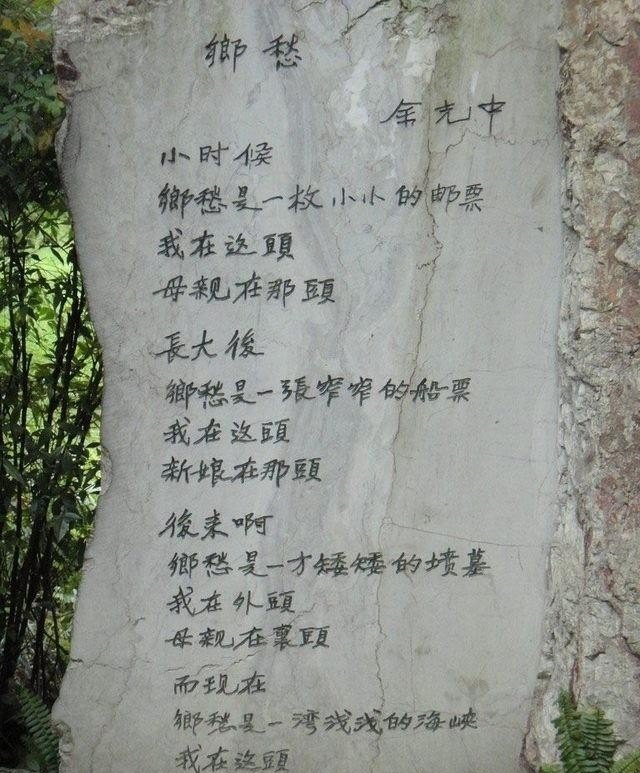 鄉愁
余光中
小时候
鄉愁是一枚小小的邮票
我在这頭
母親在那頭
長大後
鄉愁是一張窄窄的船票
我在这頭
新娘在那頭
後来啊
鄉愁是一方矮矮的墳墓
我在外頭
母親在裏頭
而现在
鄉愁是一湾浅浅的海峡
我在这頭